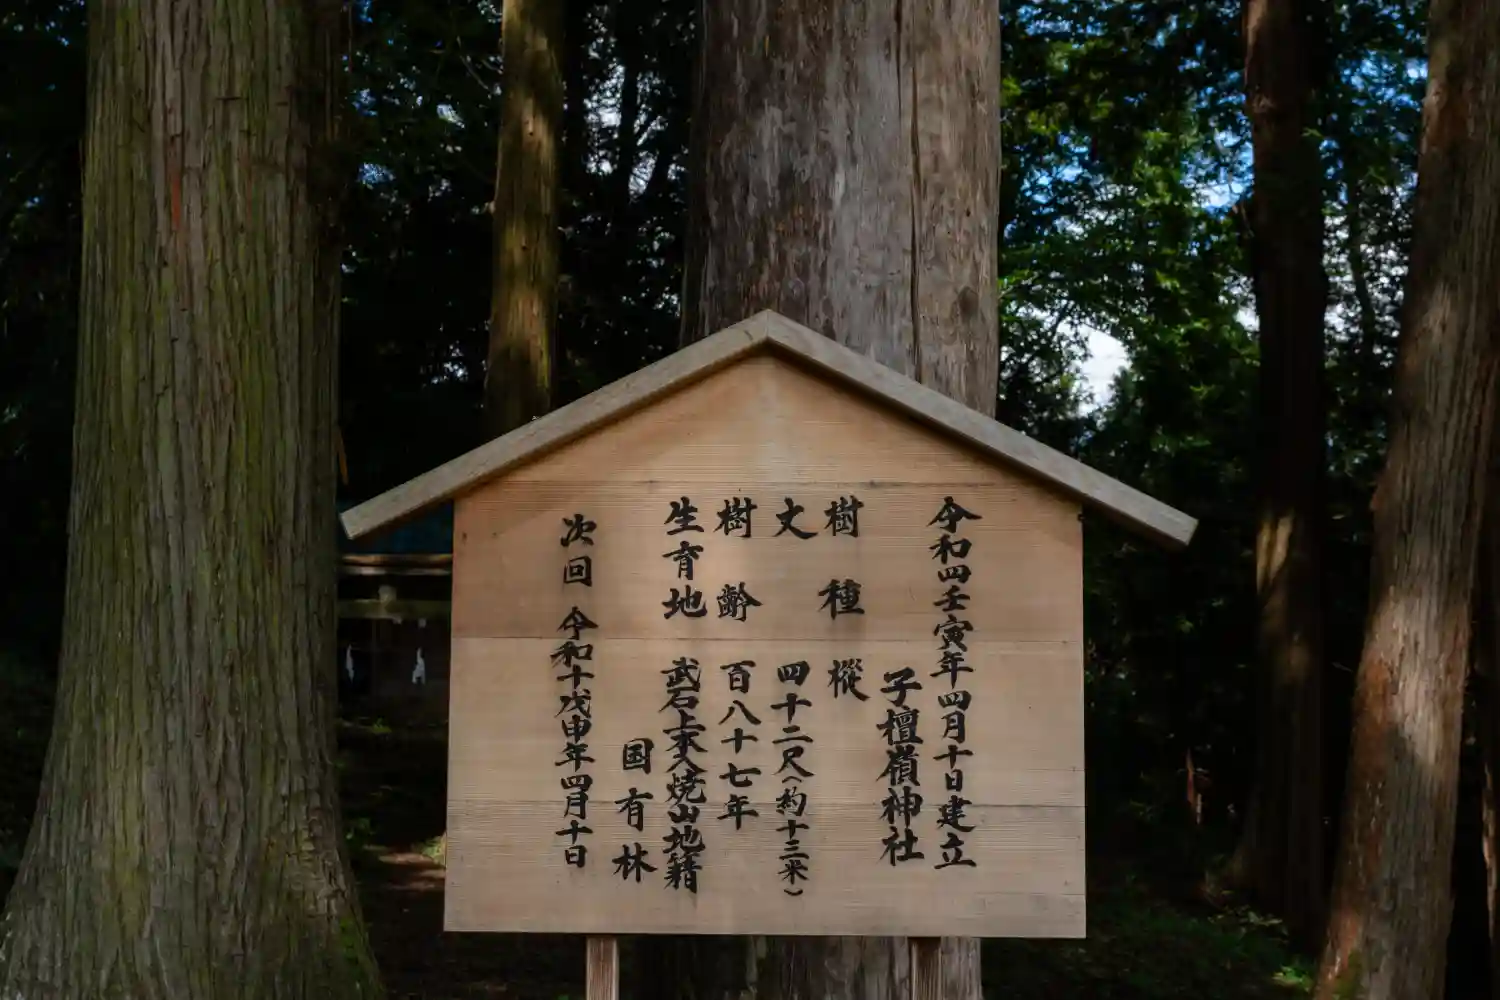 令和四壬寅年四月十日建立
子檀嶺神社
樹種 樅
丈 四十二尺(約十三米)
樹齢 百八十七年
生育地 武石上本入焼山地籍
国有林
次回 令和十戊申年四月十日